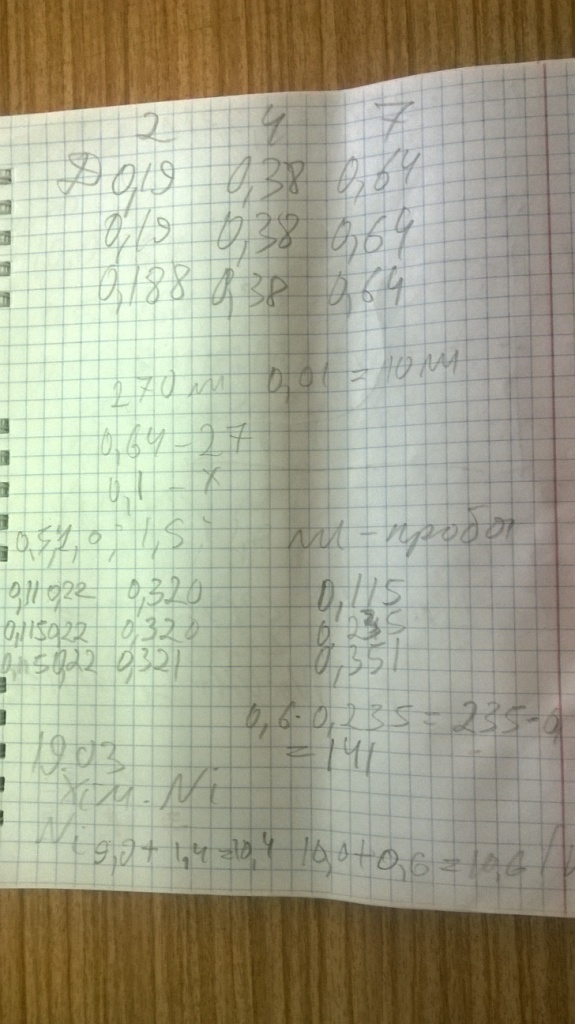 2 4 7
D 0,19 0,38 0,64
0,19 0,38 0,64
0,188 0,38 0,64
270 мл 0,01 = 10 мл
0,64 - 27
0,1 - x
0,5; 1,0; 1,5; мл - пробы
0,11 0,22 0,320 0,115
0,115 0,22 0,320 0,235
0,115 0,22 0,321 0,351
0,6 · 0,235 = 235 - 0,
= 141
19.03
Хім. Ni
Ni 9,0 + 1,4 = 10,4 10,0 + 0,6 = 10,6